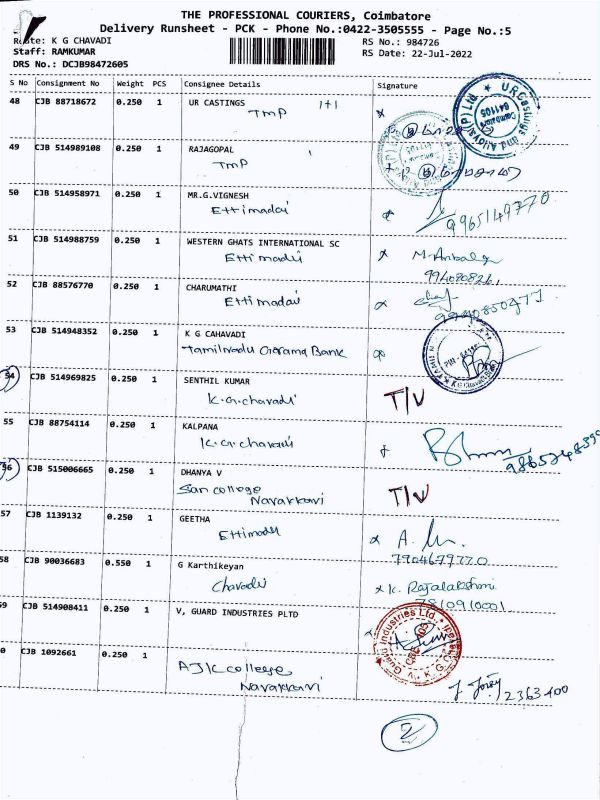 THE PROFESSIONAL COURIERS, Coimbatore
Delivery Runsheet - PCK - Phone No.:0422-3505555 - Page No.:5
Route: K G CHAVADI
RS No.: 984726
Staff: RAMKUMAR
RS Date: 22-Jul-2022
DRS No.: DCJB98472605
S No Consignment No Weight PCS Consignee Details Signature
48 CJB 88718672 0.250 1 UR CASTINGS 1+1
TMP
49 CJB 514989108 0.250 1 RAJAGOPAL
TMP
50 CJB 514958971 0.250 1 MR.G.VIGNESH
Ettimadai 9965149770
51 CJB 514988759 0.250 1 WESTERN GHATS INTERNATIONAL SC
Ettimadai
52 CJB 88576770 0.250 1 CHARUMATHI
Ettimadai
53 CJB 514948352 0.250 1 K G CAHAVADI
Tamilnadu Grama Bank
54 CJB 514969825 0.250 1 SENTHIL KUMAR
K.G.chavadi T/V
55 CJB 88754114 0.250 1 KALPANA
K.G.chavadi
56 CJB 515006665 0.250 1 DHANYA V
San college
Navakkavi T/V
57 CJB 1139132 0.250 1 GEETHA
Ettimadai
58 CJB 90036683 0.550 1 G Karthikeyan
Chavadi K. Rajalakshmi
7810910001
59 CJB 514908411 0.250 1 V, GUARD INDUSTRIES PLTD
0 CJB 1092661 0.250 1
AJK college
Navakkavi
2363400
2